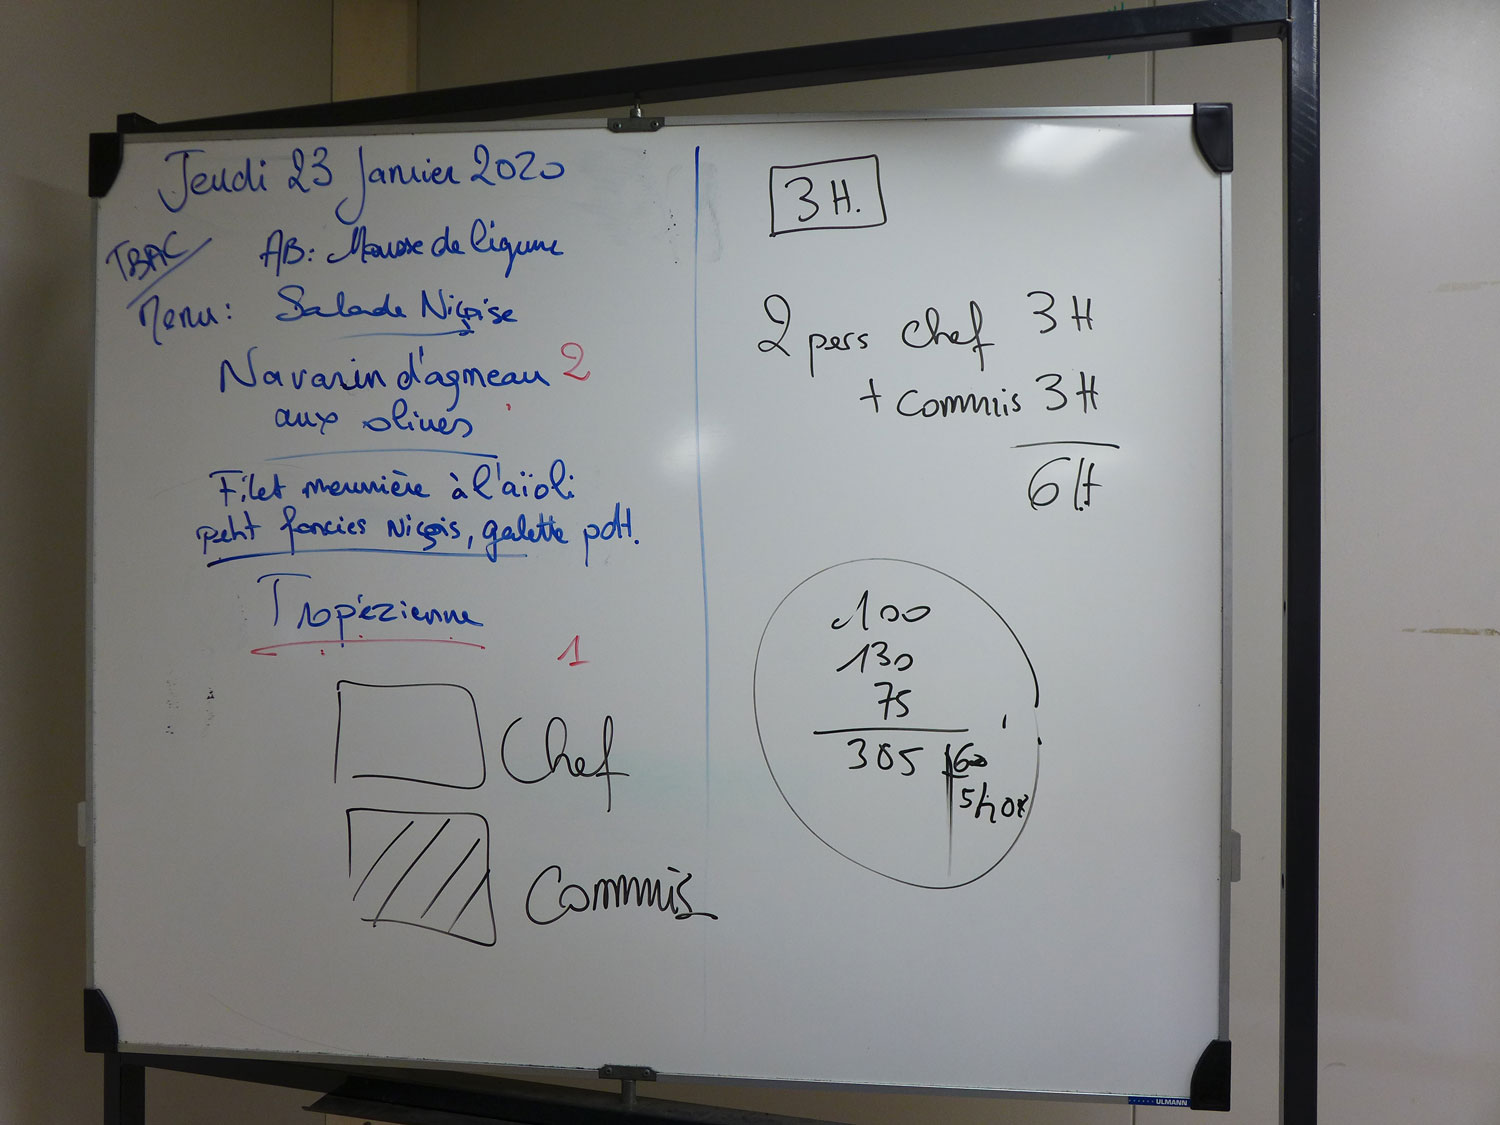 Jeudi 23 Janvier 2020
TBAC
AB: Mousse de légume
Menu: Salade Niçoise
Navarin d'agneau 2
aux olives
Filet meunière à l'aïoli
petit farcies Niçois, galette pdt.
Tropézienne
1
Chef
Commis
3 H.
2 pers chef 3 H
+ commis 3 H
6 H
100
130
75
305 60
5h
ULMANN